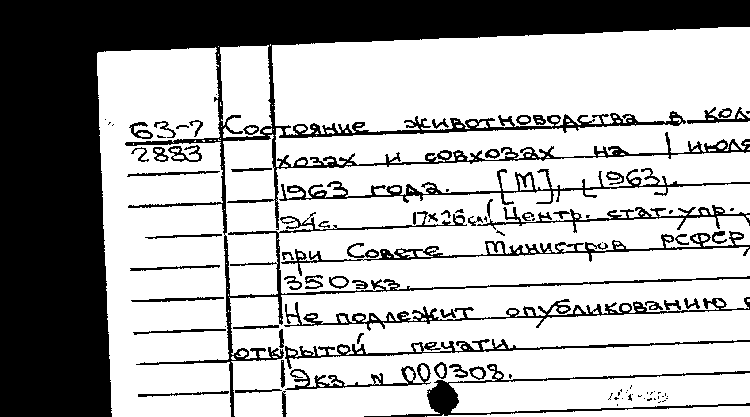 63-7 Состояние животноводства в кол-
2883 хозах и совхозах на 1 июля
1963 года. [М.], [1963].
94с. 17×26см (Центр. стат. упр.
при Совете Министров РСФСР)
350 экз.
Не подлежит опубликованию в
открытой печати.
Экз. N 000308.